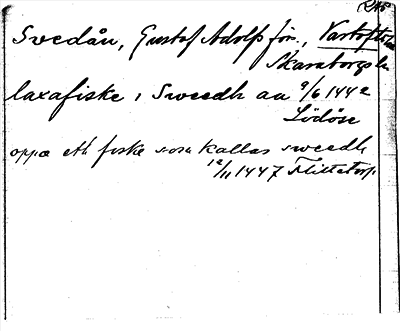 Svedån, Gustof Adolfs för., Vartofta
Skaraborgs län
laxafiske i Sweedh aa 9/6 1442
Lödöse
oppa eth fiske som kallas sweedh
12/11 1447